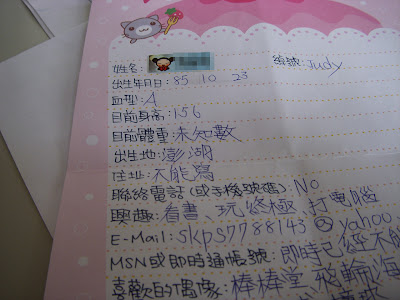 姓名: 綽號: Judy
出生年月日: 85 10 23
血型: A
目前身高: 156
目前體重: 未知數
出生地: 澎湖
住址: 不能寫
聯絡電話(或手機號碼): No
興趣: 看書、玩終極、打電腦
E-Mail: skps7788143@yahoo.
MSN或即時通帳號: 即時已經不能
喜歡的偶像: 棒棒堂、飛輪海